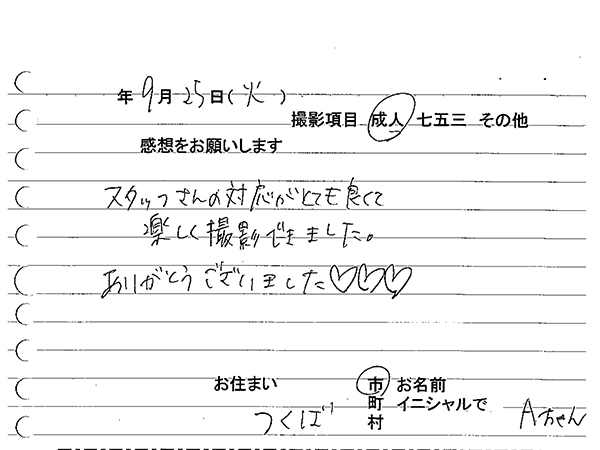 年9月25日(火)
撮影項目 成人 七五三 その他
感想をお願いします
スタッフさんの対応がとても良くて
楽しく撮影できました。
ありがとうございました♡♡♡
お住まい 市 お名前
町 イニシャルで
つくば 村 Aちゃん